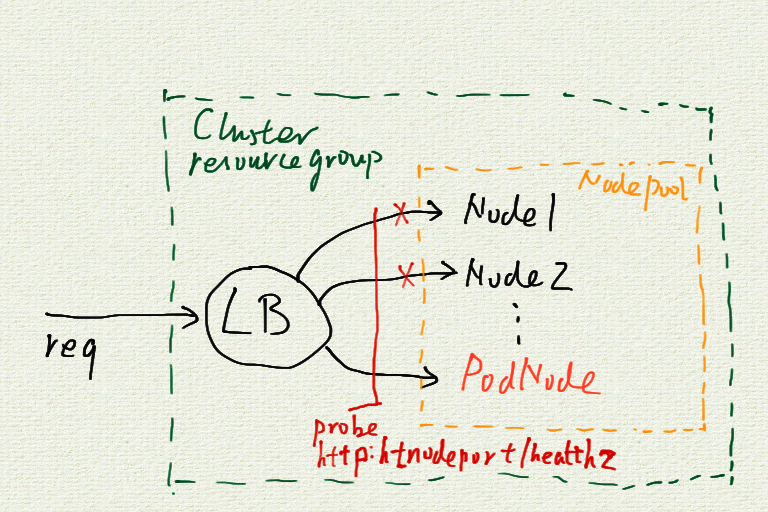 Cluster
resource group
Nodepool
Node1
Node2
LB
req
PodNode
probe
http:htnodeport/healthz